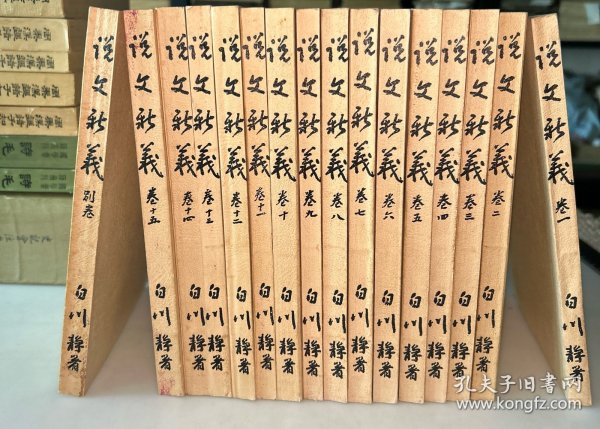 説文新義 別巻 白川靜著
説文新義 巻十五 白川靜著
説文新義 巻十四 白川靜著
説文新義 巻十三 白川靜著
説文新義 巻十二 白川靜著
説文新義 巻十一 白川靜著
説文新義 巻十 白川靜著
説文新義 巻九 白川靜著
説文新義 巻八 白川靜著
説文新義 巻七 白川靜著
説文新義 巻六 白川靜著
説文新義 巻五 白川靜著
説文新義 巻四 白川靜著
説文新義 巻三 白川靜著
説文新義 巻二 白川靜著
説文新義 巻一 白川靜著
孔夫子旧书网
www.kongfz.com